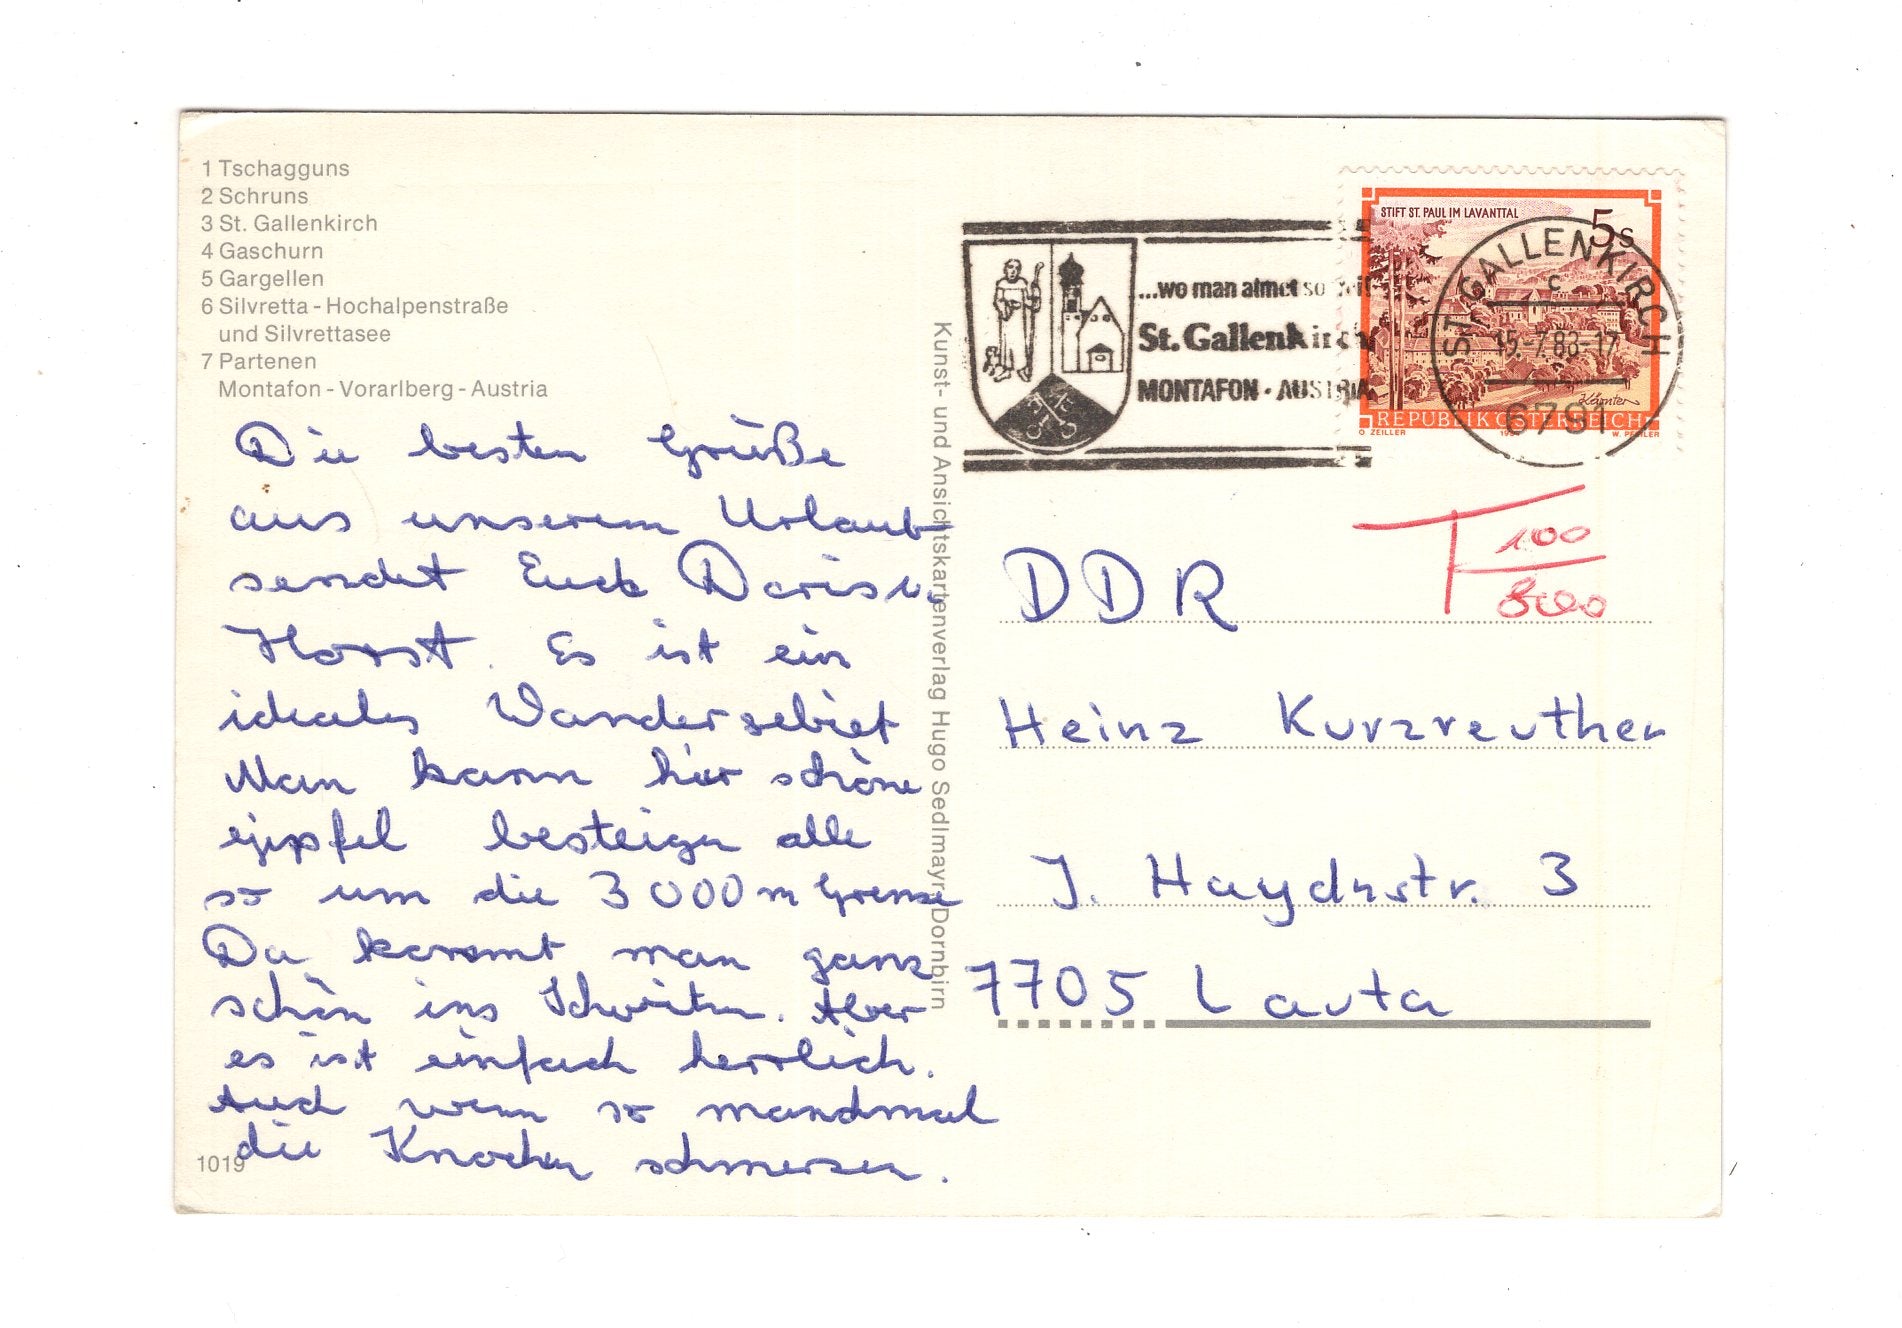 1 Tschagguns
2 Schruns
3 St. Gallenkirch
4 Gaschurn
5 Gargellen
6 Silvretta - Hochalpenstraße
und Silvrettasee
7 Partenen
Montafon - Vorarlberg - Austria
Die besten Grüße
aus unserem Urlaub
sendet Euch Doris u.
Horst. Es ist ein
ideales Wandergebiet
Man kann hier schöne
Gipfel besteigen alle
so um die 3000 m Grenze
Da kommt man ganz
schön ins Schwitzen. Aber
es ist einfach herrlich.
Auch wenn so manchmal
die Knochen schmerzen.
1019
Kunst- und Ansichtskartenverlag Hugo Sedlmayr, Dornbirn
...wo man almet so
St. Gallenkirch
MONTAFON · AUSTRIA
STIFT ST. PAUL IM LAVANTTAL
5 S
ST. GALLENKIRCH
c
15.-7.88-17
6791
Kärnten
REPUBLIK ÖSTERREICH
O ZEILLER W. PFEILER
T 100
800
DDR
Heinz Kurzreuther
J. Haydnstr. 3
7705 Lauta